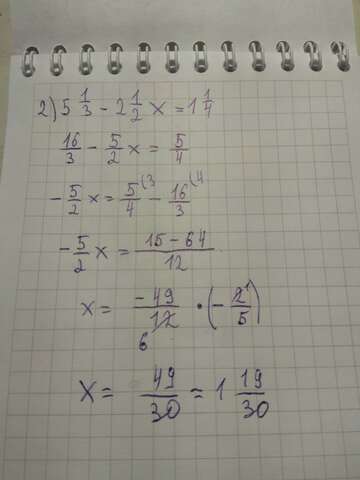 2) 5 1/3 - 2 1/2 x = 1 1/4
16/3 - 5/2 x = 5/4
- 5/2 x = 5/4 (3 - 16/3 (4
- 5/2 x = 15 - 64/12
x = -49/12 6 • (- 2 1/5)
x = 49/30 = 1 19/30